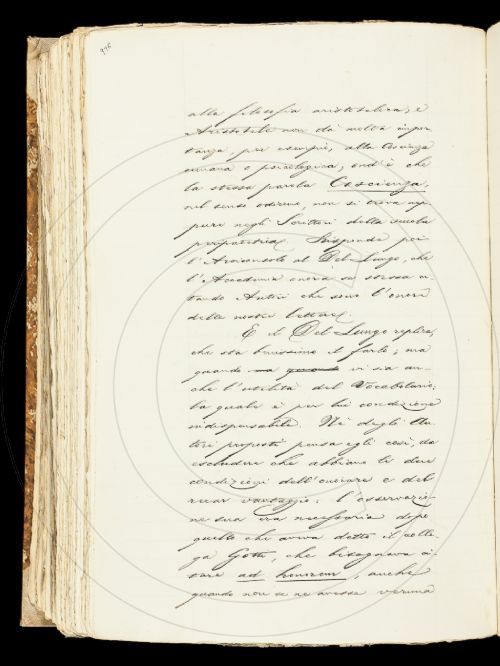 976
alla filosofia aristotelica; e
Aristotele non dà molta impor
tanza, per esempio, alla Coscienza
umana o psicologica, ond'è che
la stessa parola Coscienza,
nel senso odierno, non si trova nep
pure negli Scrittori della scuola
peripatetica. Risponde poi
l'Arciconsolo al Del Lungo, che
l'Accademia onora se stessa ci
tando Autori che sono l'onore
delle nostre lettere.
E il Del Lungo replica
che sta benissimo il farlo; ma
quando ma quando vi sia an-
che l'utilità del Vocabolario;
la quale è per lui condizione
indispensabile. Nè degli Au-
tori proposti pensa egli così, da
escludere che abbiano le due
condizioni dell'onorare e del
recar vantaggio: l'osservazio-
ne sua era necessaria dopo
quello che aveva detto il colle-
ga Gotti, che bisognava ci-
tare ad honorem, anche
quando non se ne avesse veruna